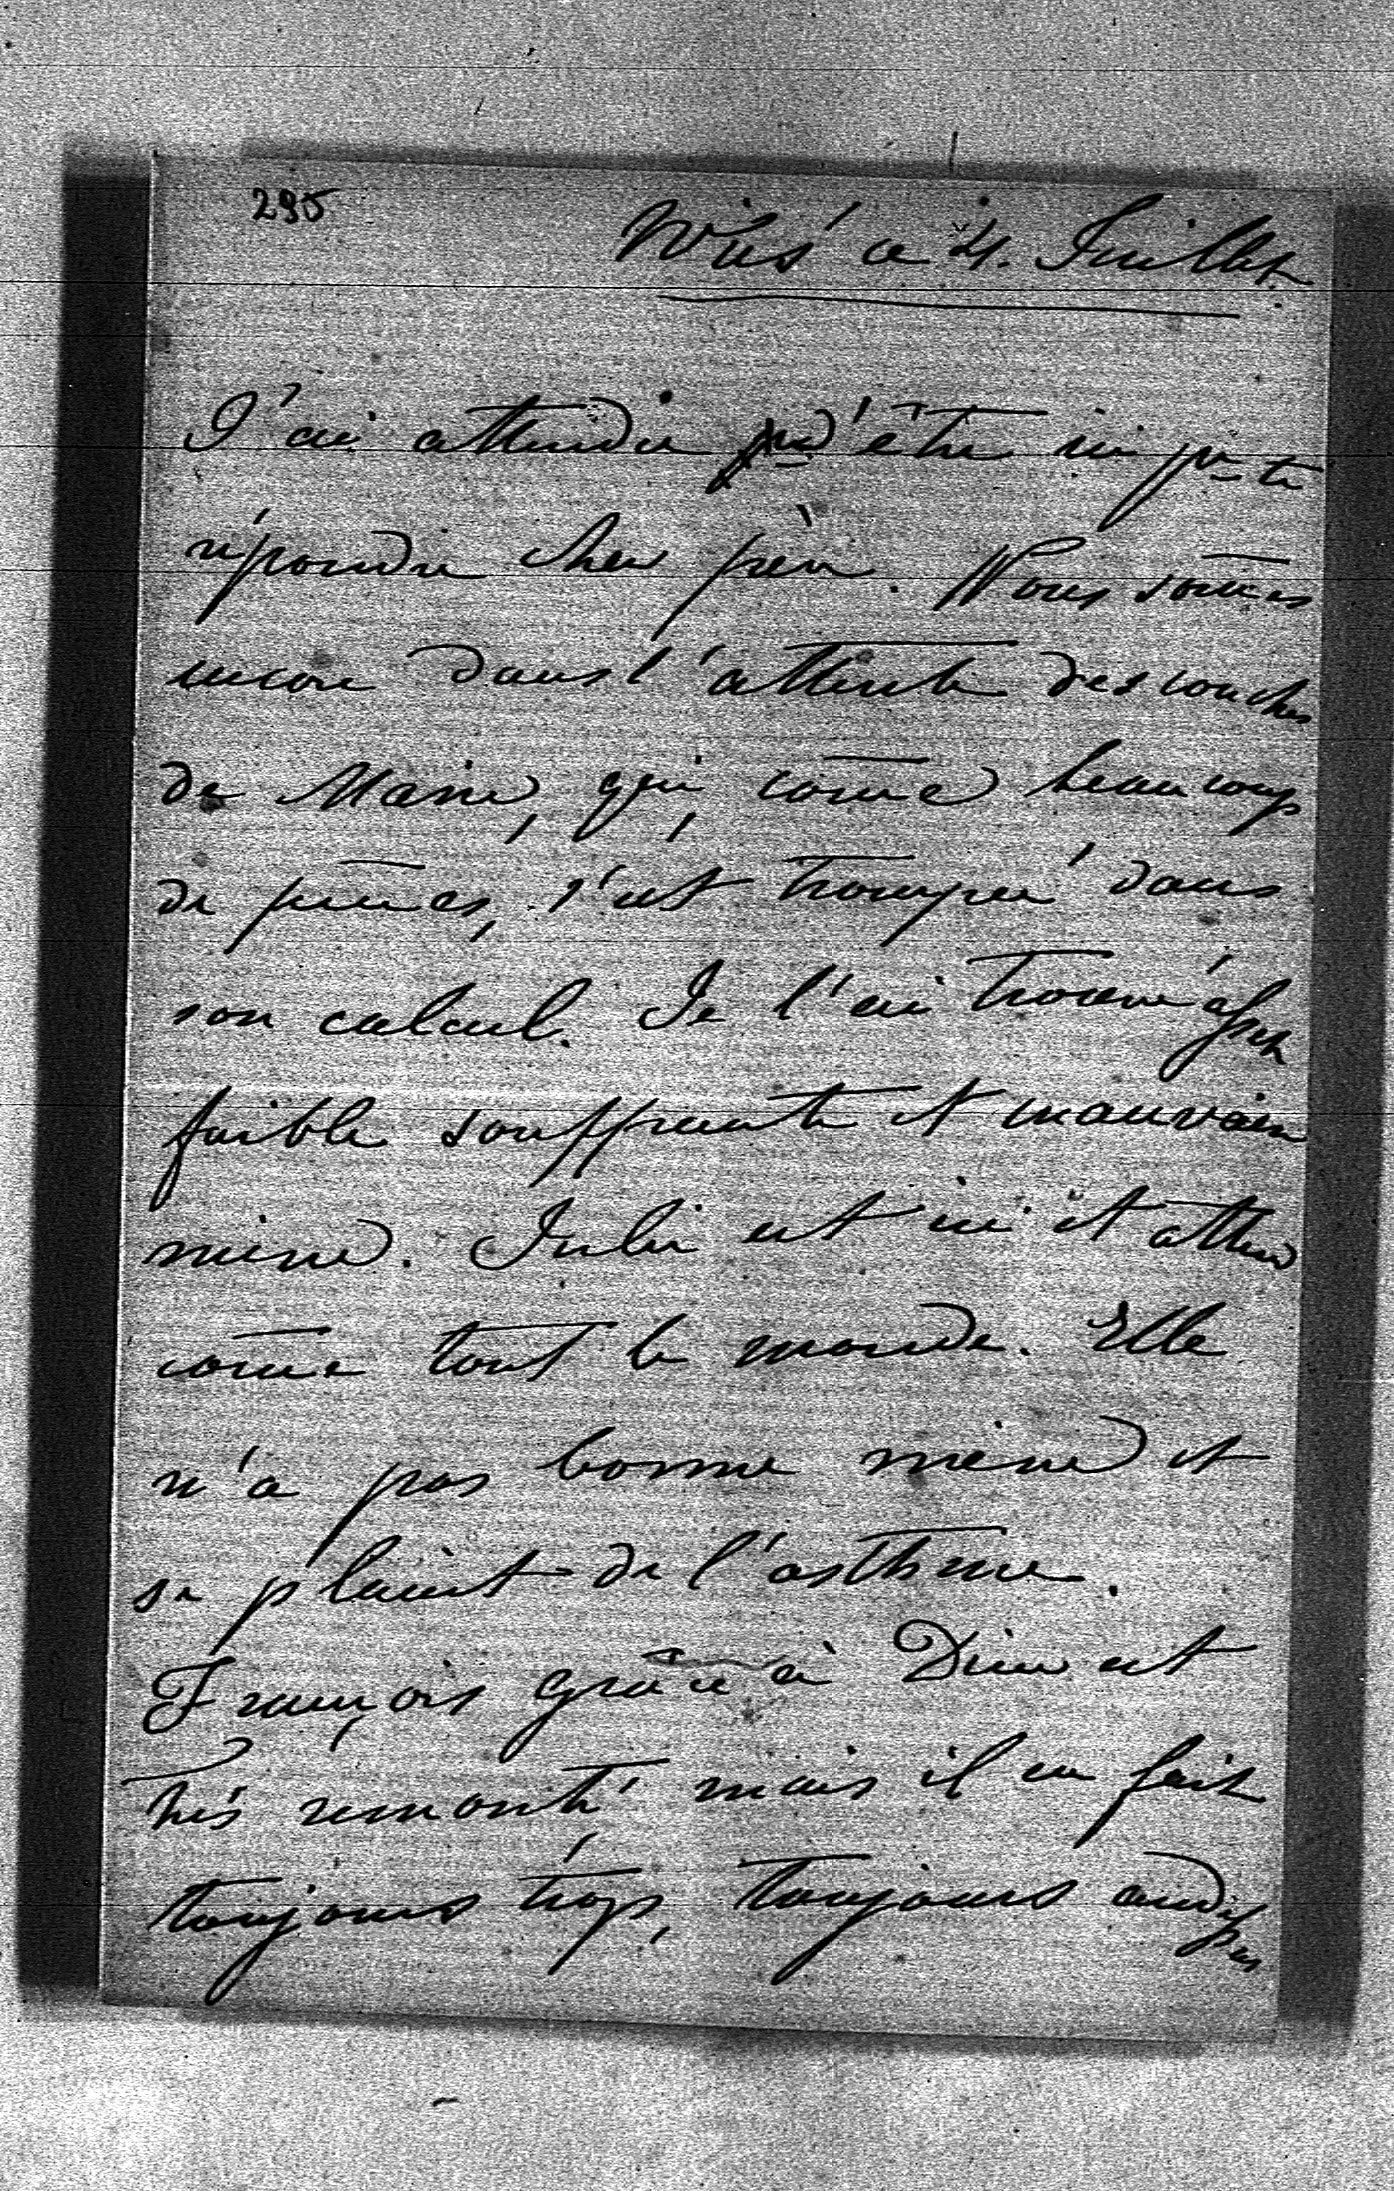 295
ce 4. Juillet.
J'ai attendu d'être ici pr te
répondre cher père. Nous som̄es
encore dans l'attente des couches
de Marie, qui, com̄e beaucoup
de jeunes, s'est trompée dans
son calcul. Je l'ai trouvé assez
faible souffrante et mauvaise
mine. Julie est ici et attend
com̄e tout le monde. Elle
n'a pas bonne mine et
se plaint de l'asthme.
François grâce à Dieu est
très remonté mais il en fait
toujours trop, toujours